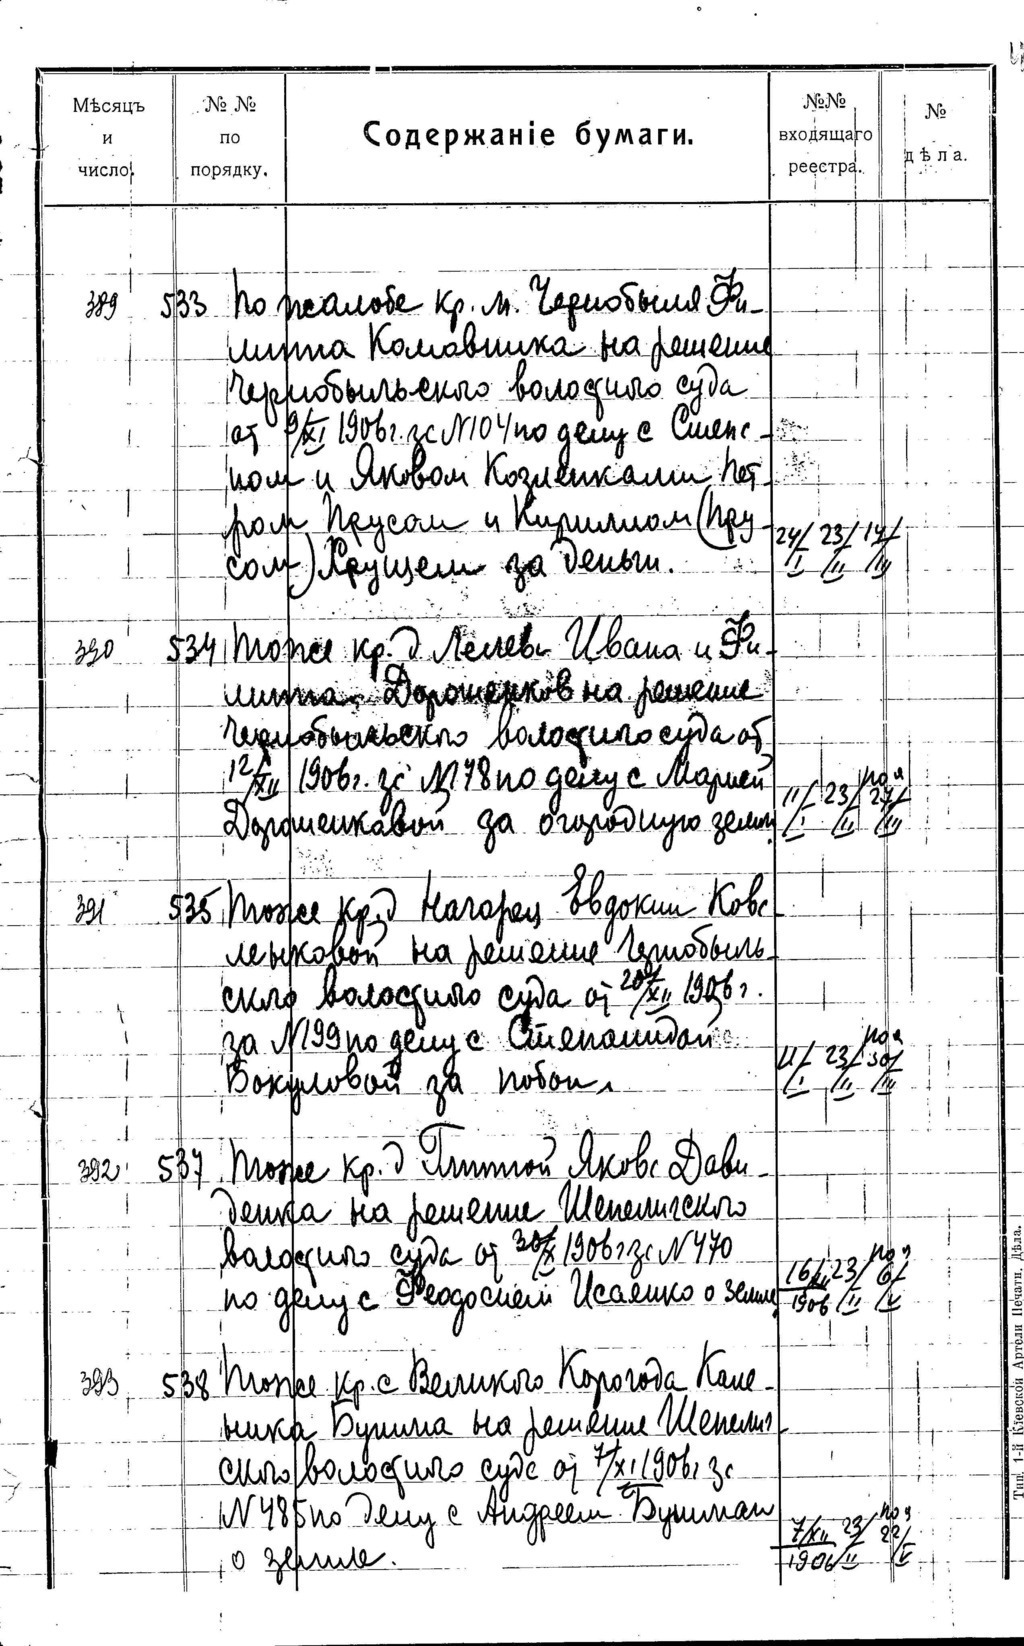 Мѣсяцъ и число.
№ № по порядку.
Содержаніе бумаги.
№№ входящаго реестра.
№ дѣла.
389 533 По жалобе кр. м. Чернобыля Фи-
липпа на решение
Чернобыльского волостного суда
от 9/XI 1906 г. за N 104 по делу с Степа-
ном и Яковом Козленками, Пет-
ром Прусом и Кириллом (Пру-
сом) Хрущем за деньги.
24/I 23/II 14/III
390 534 Тоже кр. д. Лелева Ивана и Фи-
липпа Дорошенков на решение
Чернобыльского волостного суда от
12/XII 1906 г. за N 178 по делу с Марией
Дорошенковой за огородную землю
11/I 23/II 27/III
391 535 Тоже кр. д. Нагорец Евдокии Кова-
ленковой на решение Чернобыль-
ского волостного суда от 20/XII 1906 г.
за N 199 по делу с Степанидой
Вокуловой за побои.
11/I 23/II 30/III
392 537 Тоже кр. д. Якова Дави-
денка на решение Шепеличского
волостного суда от 30/X 1906 г. за N 470
по делу с Феодосией Исаенко о земле
16/XII 1906 23/II 6/V
393 538 Тоже кр. с. Великого Корогода Кале-
ника Бунима на решение Шепелич
ского волостного суда от 7/XI 1906 г. за
N 485 по делу с Андреем Бунимом
о земле.
7/XII 1906 23/II 22/V
Тип. 1-й Кіевской Артели Печатн. Дѣла.